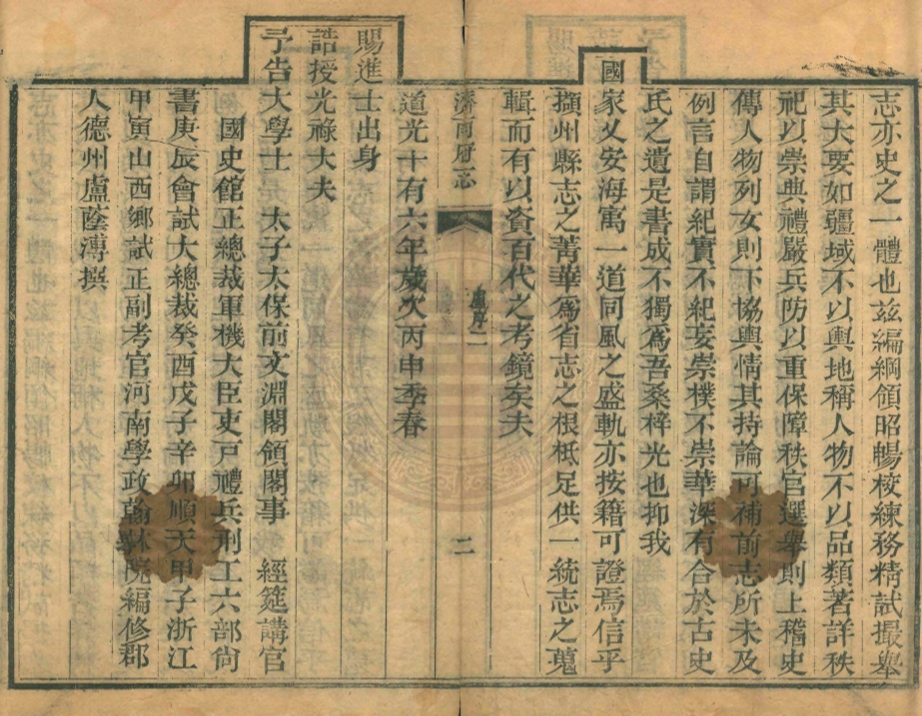 志亦史之一體也茲編綱領昭暢校練務精試撮舉
其大要如疆域不以輿地稱人物不以品類著詳秩
祀以崇典禮嚴兵防以重保障秩官選舉則上稽史
傳人物列女則下協輿情其持論可補前志所未及
例言自謂紀實不紀妄崇樸不崇華深有合於古史
氏之遺是書成不獨為吾桑梓光也抑我
國家乂安海寓一道同風之盛軌亦按籍可證焉信乎
擷州縣志之菁華為省志之根柢足供一統志之蒐
輯而有以資百代之考鏡矣夫
濟南府志
盧序
二
道光十有六年歲次丙申季春
賜進士出身
誥授光祿大夫
予告大學士 太子太保前文淵閣領閣事 經筵講官
國史館正總裁軍機大臣吏戶禮兵刑工六部尚
書庚辰會試大總裁癸酉戊子辛卯順天甲子浙江
甲寅山西鄉試正副考官河南學政翰林院編修郡
人德州盧蔭溥撰